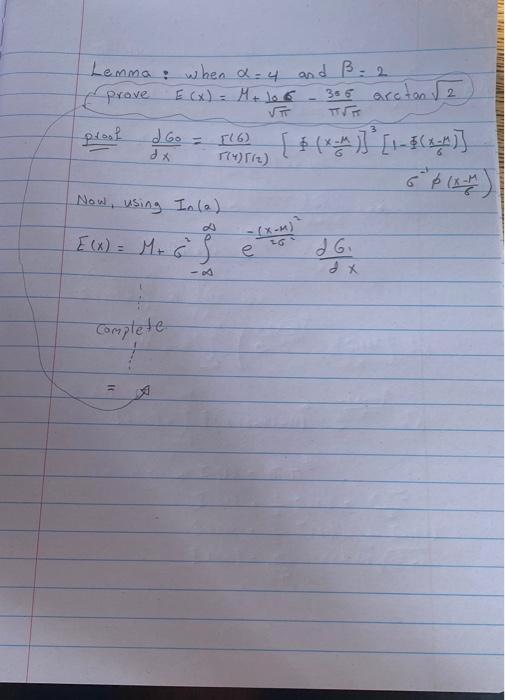 Lemma : when α = 4 and β = 2
prove E(x) = M + 10 σ/√π - 30 σ/π√π arctan √2
proof dG₀/dx = Γ(6)/Γ(4)Γ(2) [Φ(x-M/σ)]³ [1-Φ(x-M/σ)]
σ⁻¹ φ(x-M/σ)
Now, using In(a)
E(x) = M + σ² ∫_{-∞}^{∞} e^{-(x-M)²/2σ²} dG₁/dx
complete
=